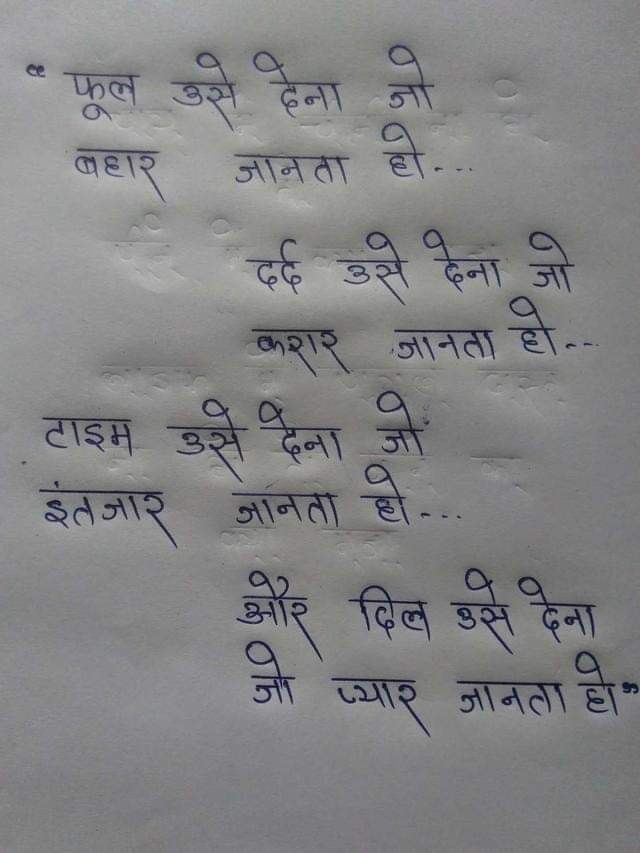 “ फूल उसे देना जो
बहार जानता हो---
दर्द उसे देना जो
करार जानता हो---
टाइम उसे देना जो
इंतजार जानता हो---
और दिल उसे देना
जो प्यार जानता हो”